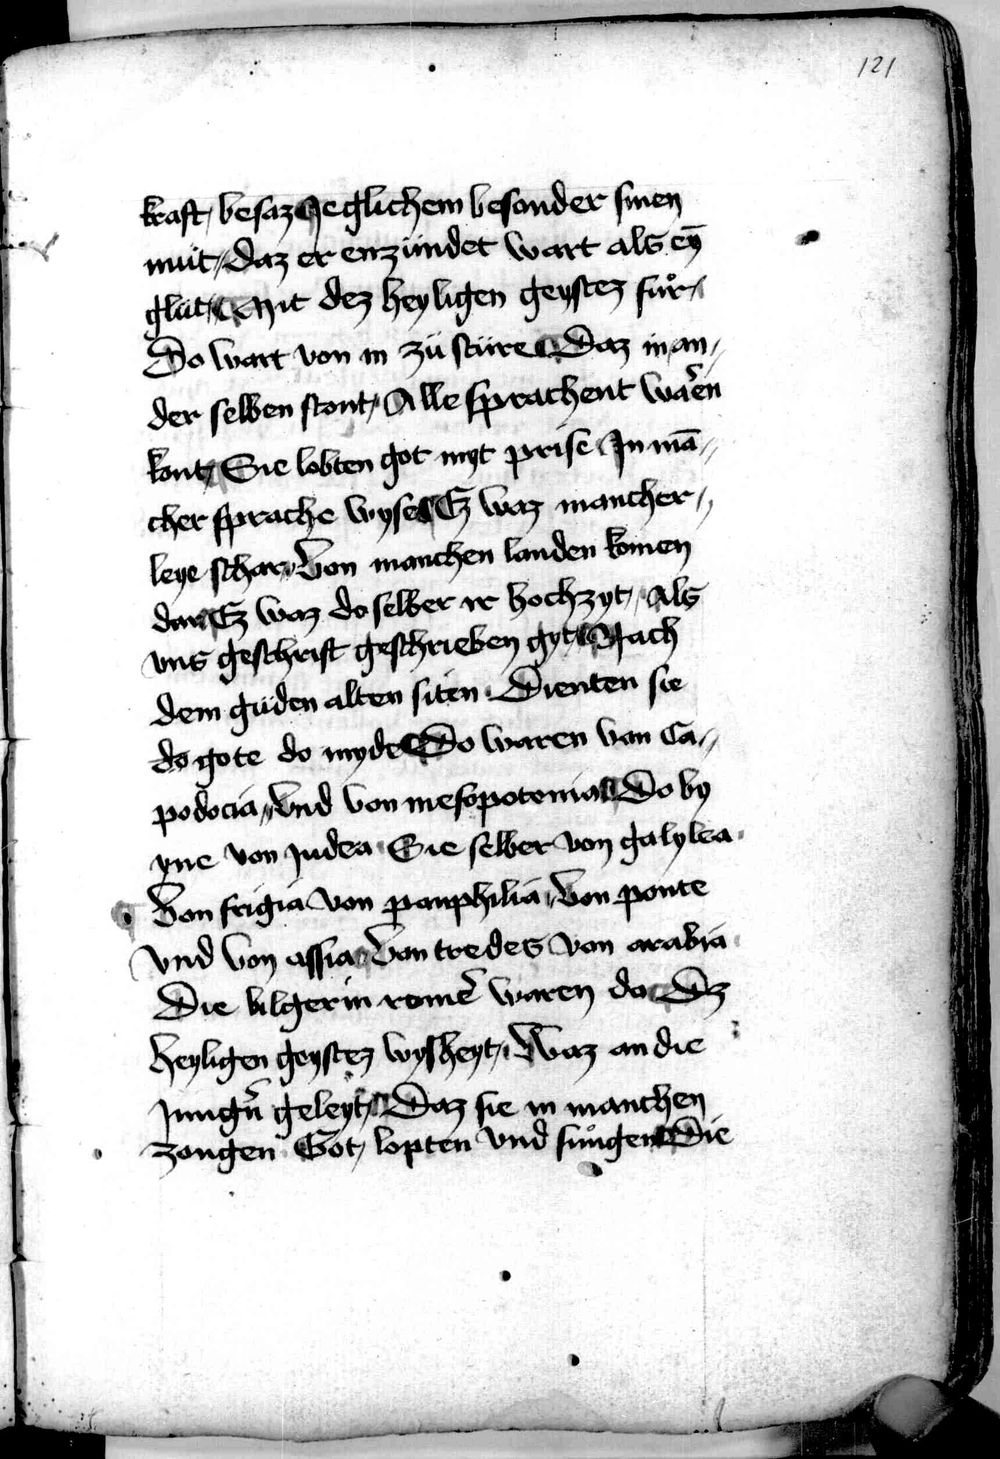 121
kraft, besaz Jeglichem besonder sinen
mut, Daz er enzündet wart als eȳ
glüt, Mit dez heyligen geystez fůr,
Do wart von in zü stüre Daz in an„
der selben stont, Alle sprachent warēn
kont, Sie lobten got myt prise In mā„
cher sprache wyse Ez waz mancher„
leye schar, Von manchen landen komen
dar Ez waz do selber ir hochzyt, Als
vns geschrift geschrieben gyt Nach
dem güden alten siten Dienten sie
do gote do myde Do waren von Ca„
podocia, Vnd von mesopotenia Do by
yne von Judea Sie selber von galylea
Von frigia von panphilia, Von ponte
vnd von assia, Von tredes von arabia
Die bilgerin romē waren do Dz
heyligen geystez wysheyt, Waz an die
Jungn̄ geleyt, Daz sie in manchen
zongen Got, lopten vnd sůngen Die